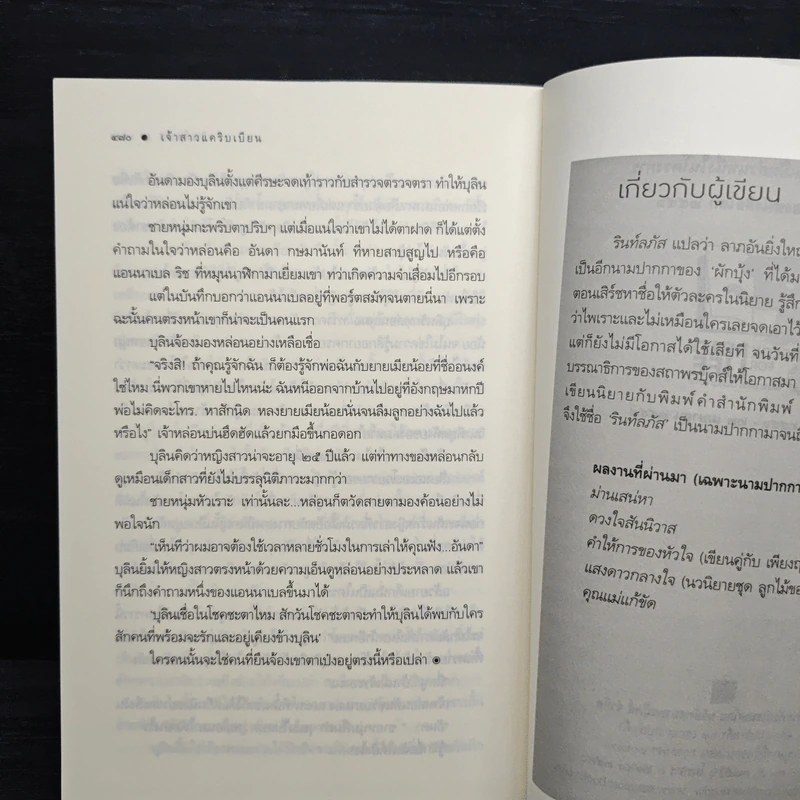 ๔๗๐ ● เจ้าสาวแคริบเบียน
อันดามองบุลินตั้งแต่ศีรษะจดเท้าราวกับสำรวจตรวจตรา ทำให้บุลิน
แน่ใจว่าหล่อนไม่รู้จักเขา
ชายหนุ่มกะพริบตาปริบๆ แต่เมื่อแน่ใจว่าเขาไม่ได้ตาฝาด ก็ได้แต่ตั้ง
คำถามในใจว่าหล่อนคือ อันดา กษมานันท์ ที่หายสาบสูญไป หรือคือ
แอนนาเบล ริช ที่หมุนนาฬิกามาเยี่ยมเขา ทว่าเกิดความจำเสื่อมไปอีกรอบ
แต่ในบันทึกบอกว่าแอนนาเบลอยู่ที่พอร์ตสมัทจนตายนี่นา เพราะ
ฉะนั้นคนตรงหน้าเขาก็น่าจะเป็นคนแรก
บุลินจ้องมองหล่อนอย่างเหลือเชื่อ
“จริงสิ! ถ้าคุณรู้จักฉัน ก็ต้องรู้จักพ่อฉันกับยายเมียน้อยที่ชื่ออนงค์
ใช่ไหม นี่พวกเขาหายไปไหนน่ะ ฉันหนีออกจากบ้านไปอยู่ที่อังกฤษมาหกปี
พ่อไม่คิดจะโทร. หาสักนิด หลงยายเมียน้อยนั่นจนลืมลูกอย่างฉันไปแล้ว
หรือไง” เจ้าหล่อนบ่นฮึดฮัดแล้วยกมือขึ้นกอดอก
บุลินคิดว่าหญิงสาวน่าจะอายุ ๒๕ ปีแล้ว แต่ท่าทางของหล่อนกลับ
ดูเหมือนเด็กสาวที่ยังไม่บรรลุนิติภาวะมากกว่า
ชายหนุ่มหัวเราะ เท่านั้นละ...หล่อนก็ตวัดสายตามองค้อนอย่างไม่
พอใจนัก
“เห็นทีว่าผมอาจต้องใช้เวลาหลายชั่วโมงในการเล่าให้คุณฟัง...อันดา”
บุลินยิ้มให้หญิงสาวตรงหน้าด้วยความเอ็นดูหล่อนอย่างประหลาด แล้วเขา
ก็นึกถึงคำถามหนึ่งของแอนนาเบลขึ้นมาได้
‘บุลินเชื่อในโชคชะตาไหม สักวันโชคชะตาจะทำให้บุลินได้พบกับใคร
สักคนที่พร้อมจะรักและอยู่เคียงข้างบุลิน’
ใครคนนั้นจะใช่คนที่ยืนจ้องเขาตาเป๋งอยู่ตรงนี้หรือเปล่า
เกี่ยวกับผู้เขียน
รินท์ลภัส แปลว่า ลาภอันยิ่งใหญ
เป็นอีกนามปากกาของ ‘ผักบุ้ง’ ที่ได้ม
ตอนเสิร์ชหาชื่อให้ตัวละครในนิยาย รู้สึก
ว่าไพเราะและไม่เหมือนใครเลยจดเอาไว้
แต่ก็ยังไม่มีโอกาสได้ใช้เสียที จนวันที่
บรรณาธิการของสถาพรบุ๊คส์ให้โอกาสมา
เขียนนิยายกับพิมพ์คำสำนักพิมพ์
จึงใช้ชื่อ ‘รินท์ลภัส’ เป็นนามปากกามาจนถึ
ผลงานที่ผ่านมา (เฉพาะนามปากกา
ม่านเสน่หา
ดวงใจสันนิวาส
คำให้การของหัวใจ (เขียนคู่กับ เพียงฤ
แสงดาวกลางใจ (นวนิยายชุด ลูกไม้ขอ
คุณแม่แก้ขัด